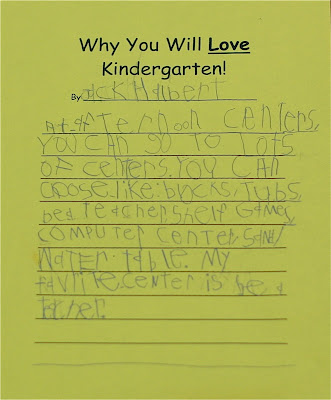 Why You Will Love
Kindergarten!
By Jack Halbert
At afternoon centers,
you can go to lots
of centers. You can
choose. like: blocks, Tubs,
be a teacher shelf Games,
computer center, Sand/
Water table. My
favlite.center is be a
teacher.